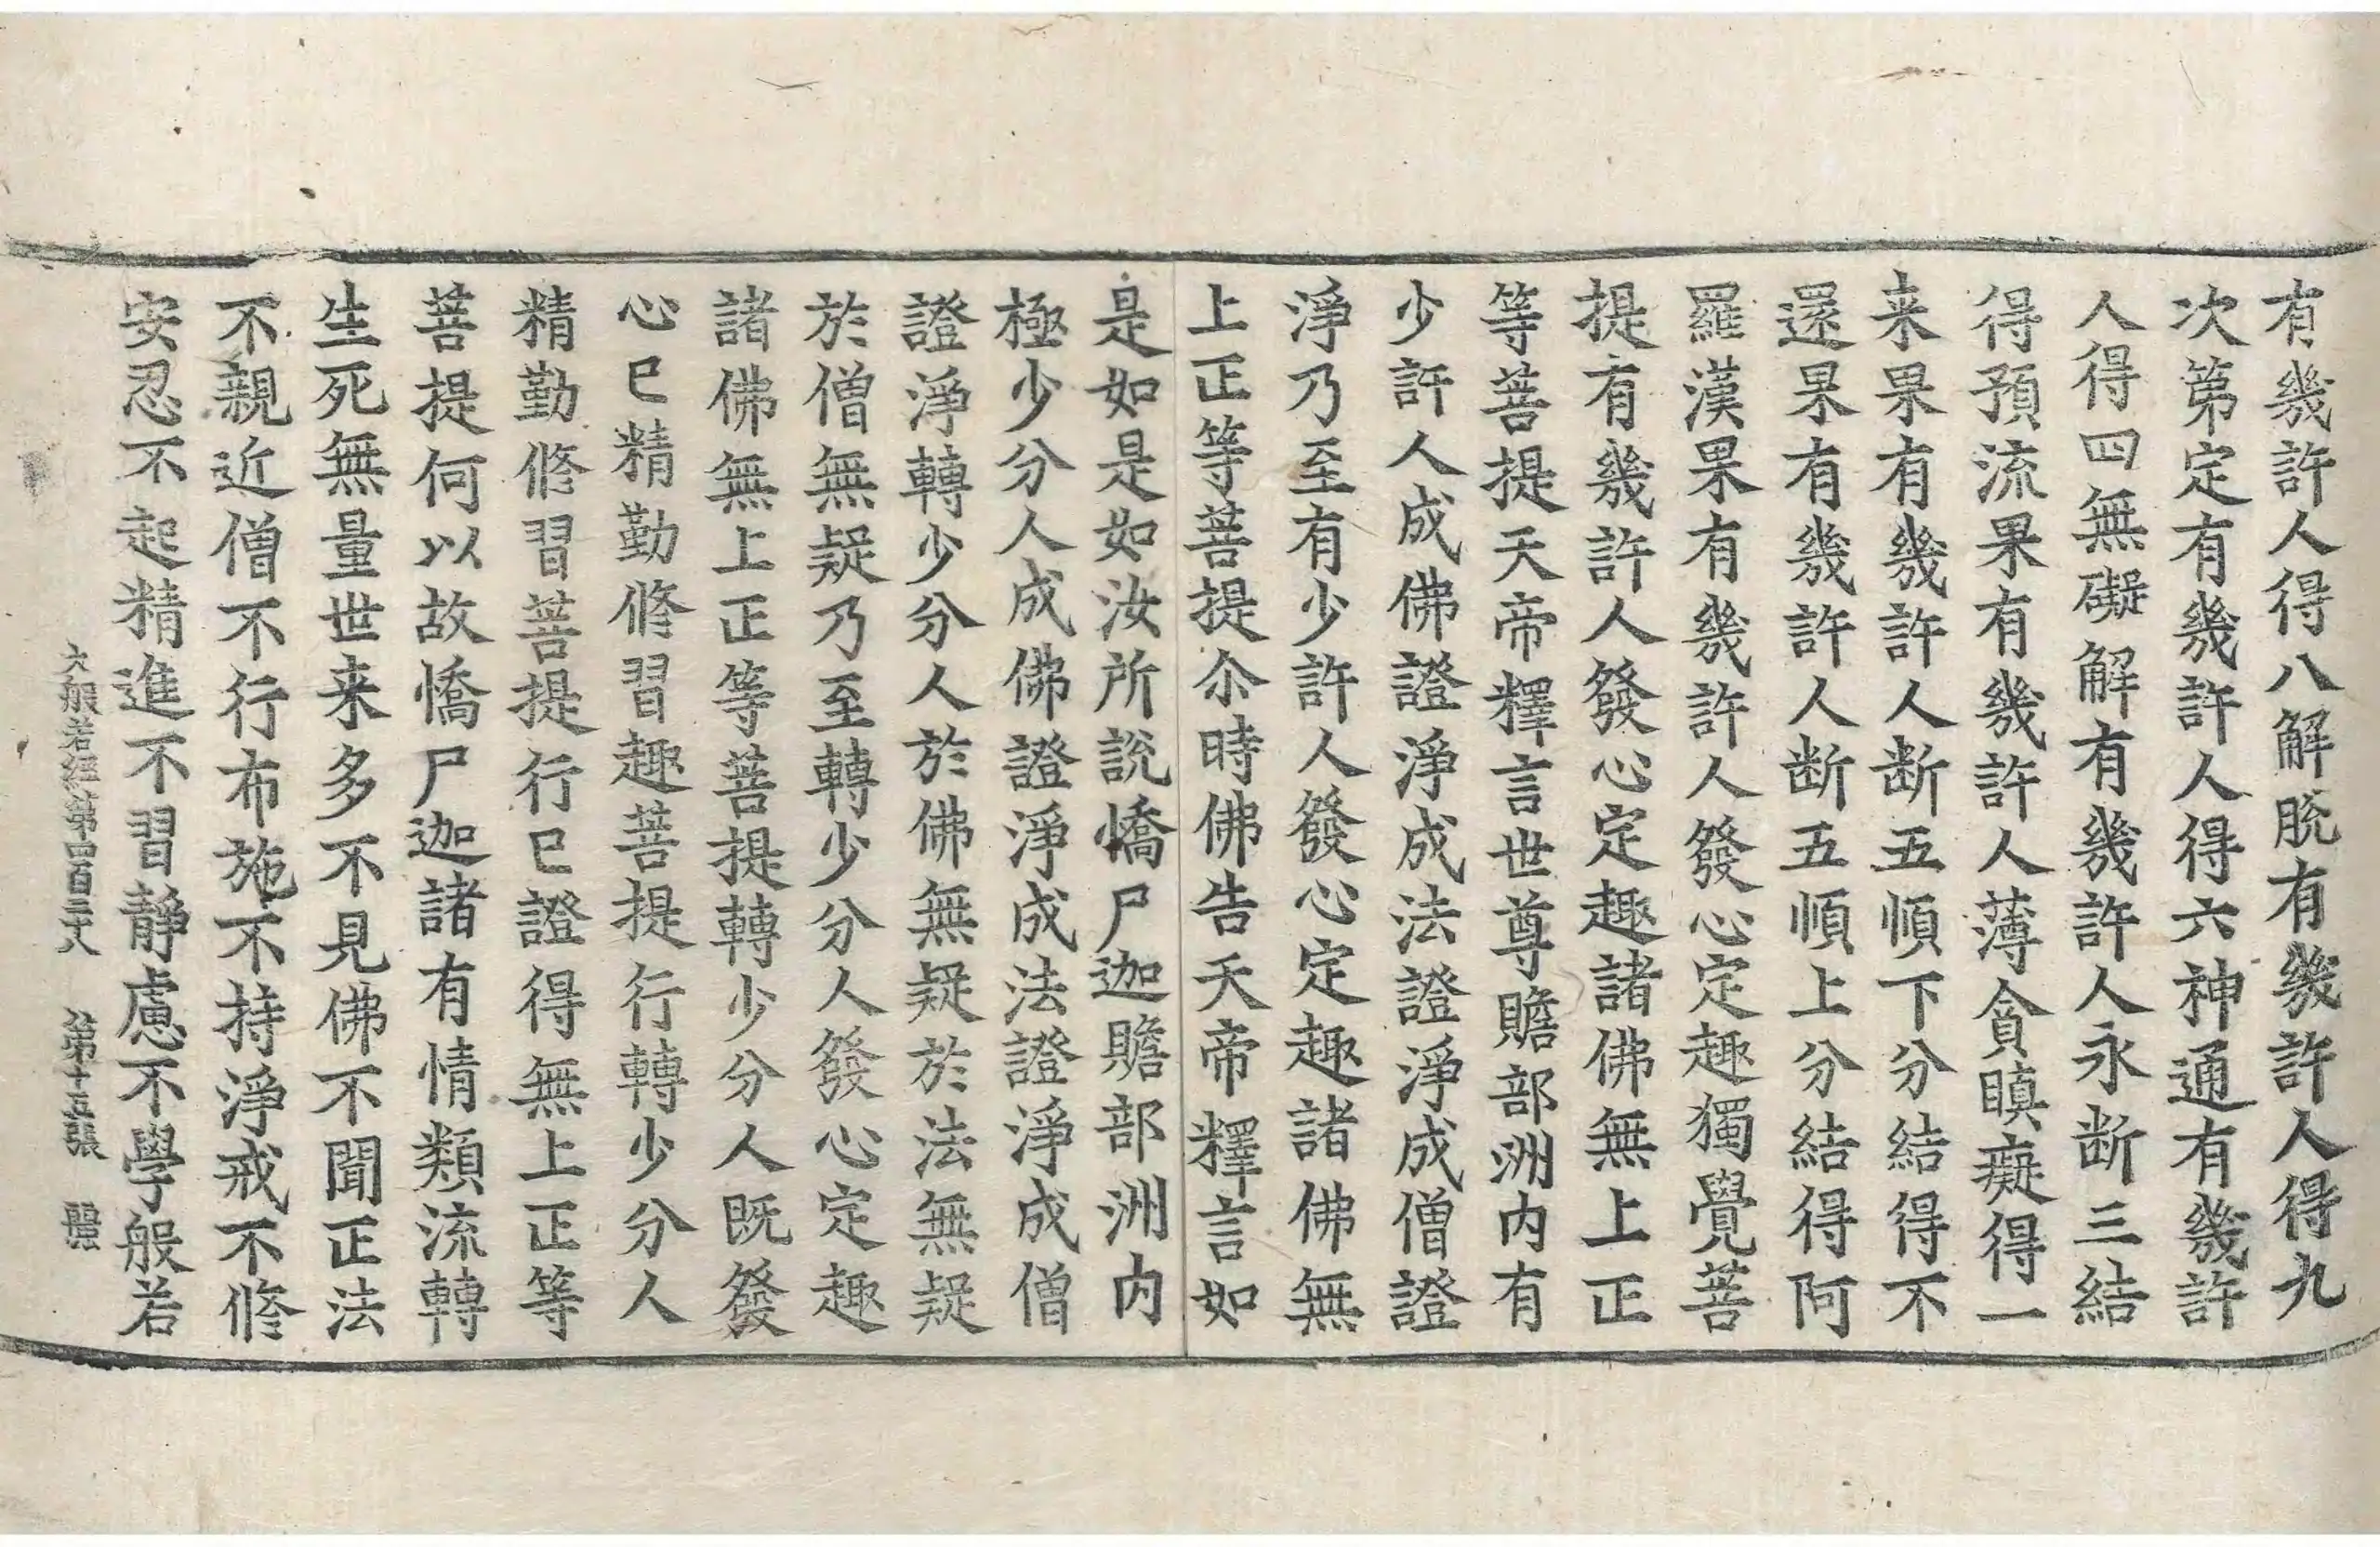 有幾許人得八解脫有幾許人得九
次第定有幾許人得六神通有幾許
人得四無礙解有幾許人永断三結
得預流果有幾許人薄貪瞋癡得一
来果有幾許人断五順下分結得不
還果有幾許人断五順上分結得阿
羅漢果有幾許人發心定趣獨覺菩
提有幾許人發心定趣諸佛無上正
等菩提天帝釋言世尊贍部洲内有
少許人成佛證淨成法證淨成僧證
淨乃至有少許人發心定趣諸佛無
上正等菩提尒時佛告天帝釋言如
是如是如汝所説憍尸迦贍部洲内
極少分人成佛證淨成法證淨成僧
證淨轉少分人於佛無疑於法無疑
於僧無疑乃至轉少分人發心定趣
諸佛無上正等菩提轉少分人既發
心已精勤修習趣菩提行轉少分人
精勤修習菩提行已證得無上正等
菩提何以故憍尸迦諸有情類流轉
生死無量世来多不見佛不聞正法
不親近僧不行布施不持淨戒不修
安忍不起精進不習靜慮不學般若
大般若經第四百二十八 第十五張